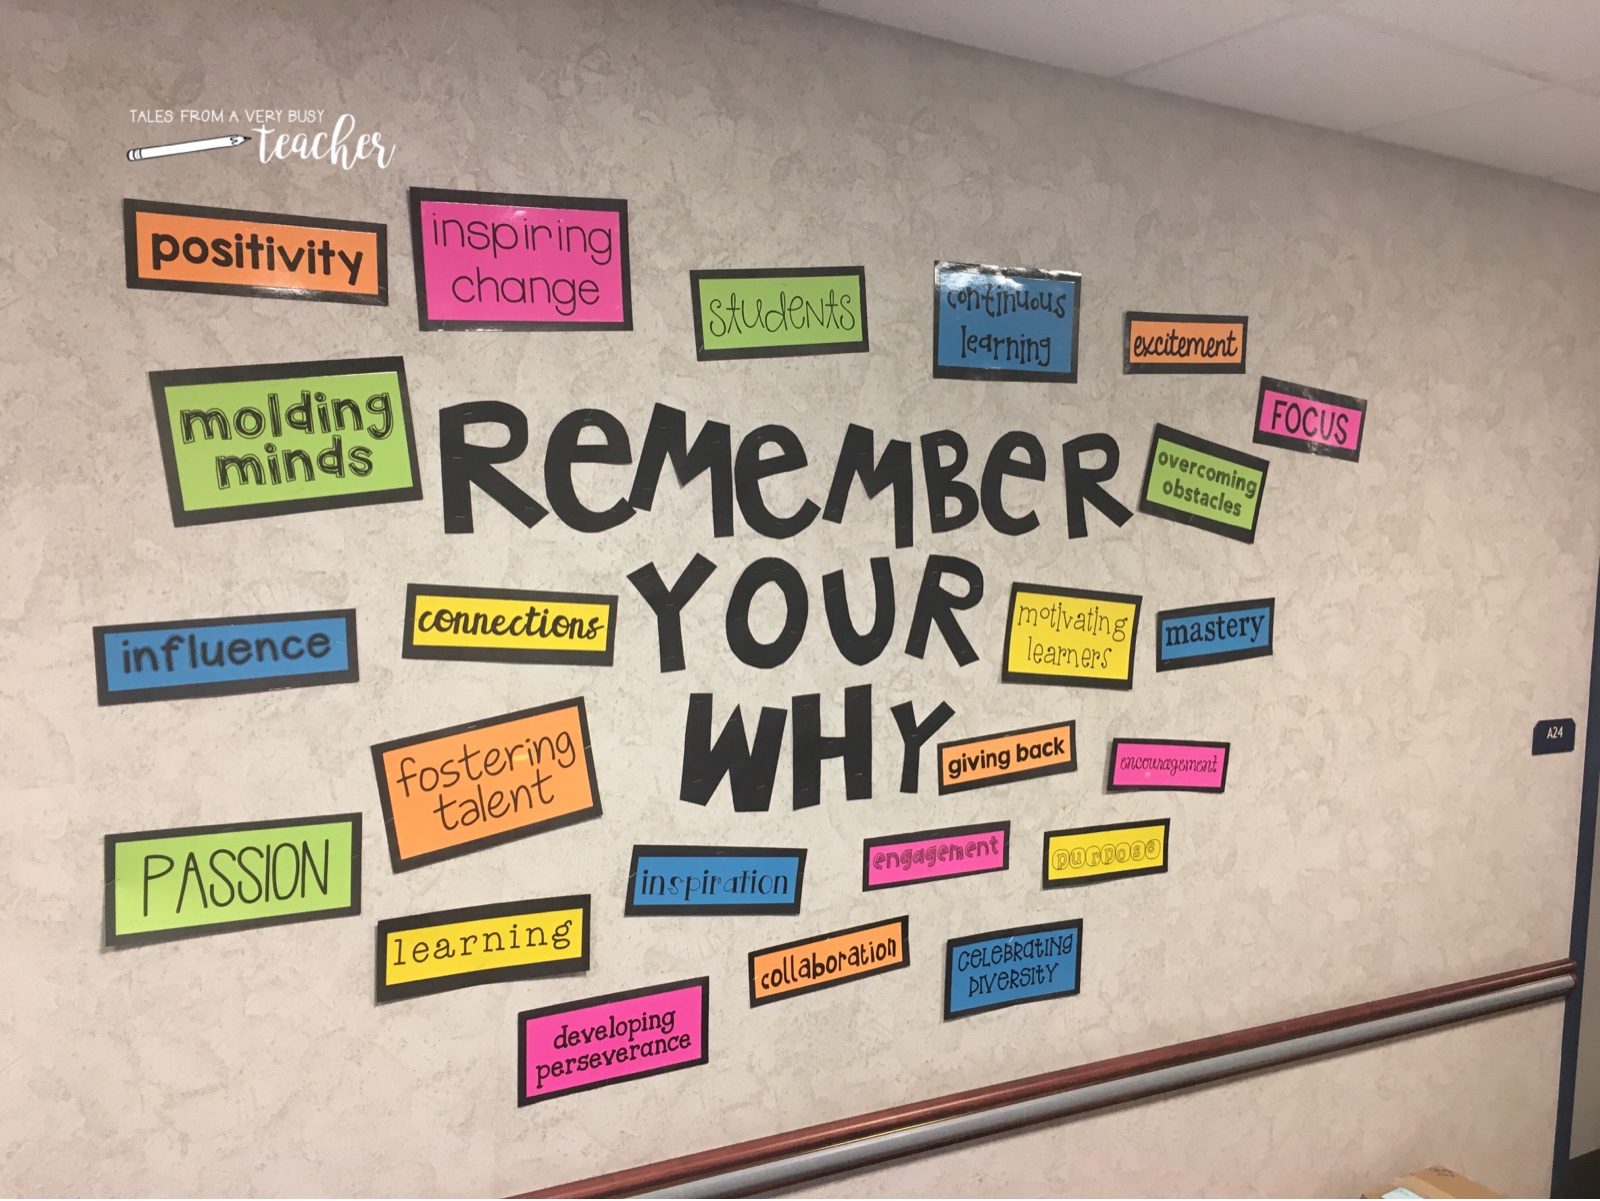 TALES FROM A VERY BUSY
teacher
positivity
inspiring
change
students
continuous
learning
excitement
FOCUS
molding
minds
REMEMBER
overcoming
obstacles
YOUR
influence
connections
motivating
learners
mastery
WHY
giving back
encouragement
A24
fostering
talent
PASSION
inspiration
engagement
purpose
learning
collaboration
CELEBRATING
DIVERSITY
developing
perseverance